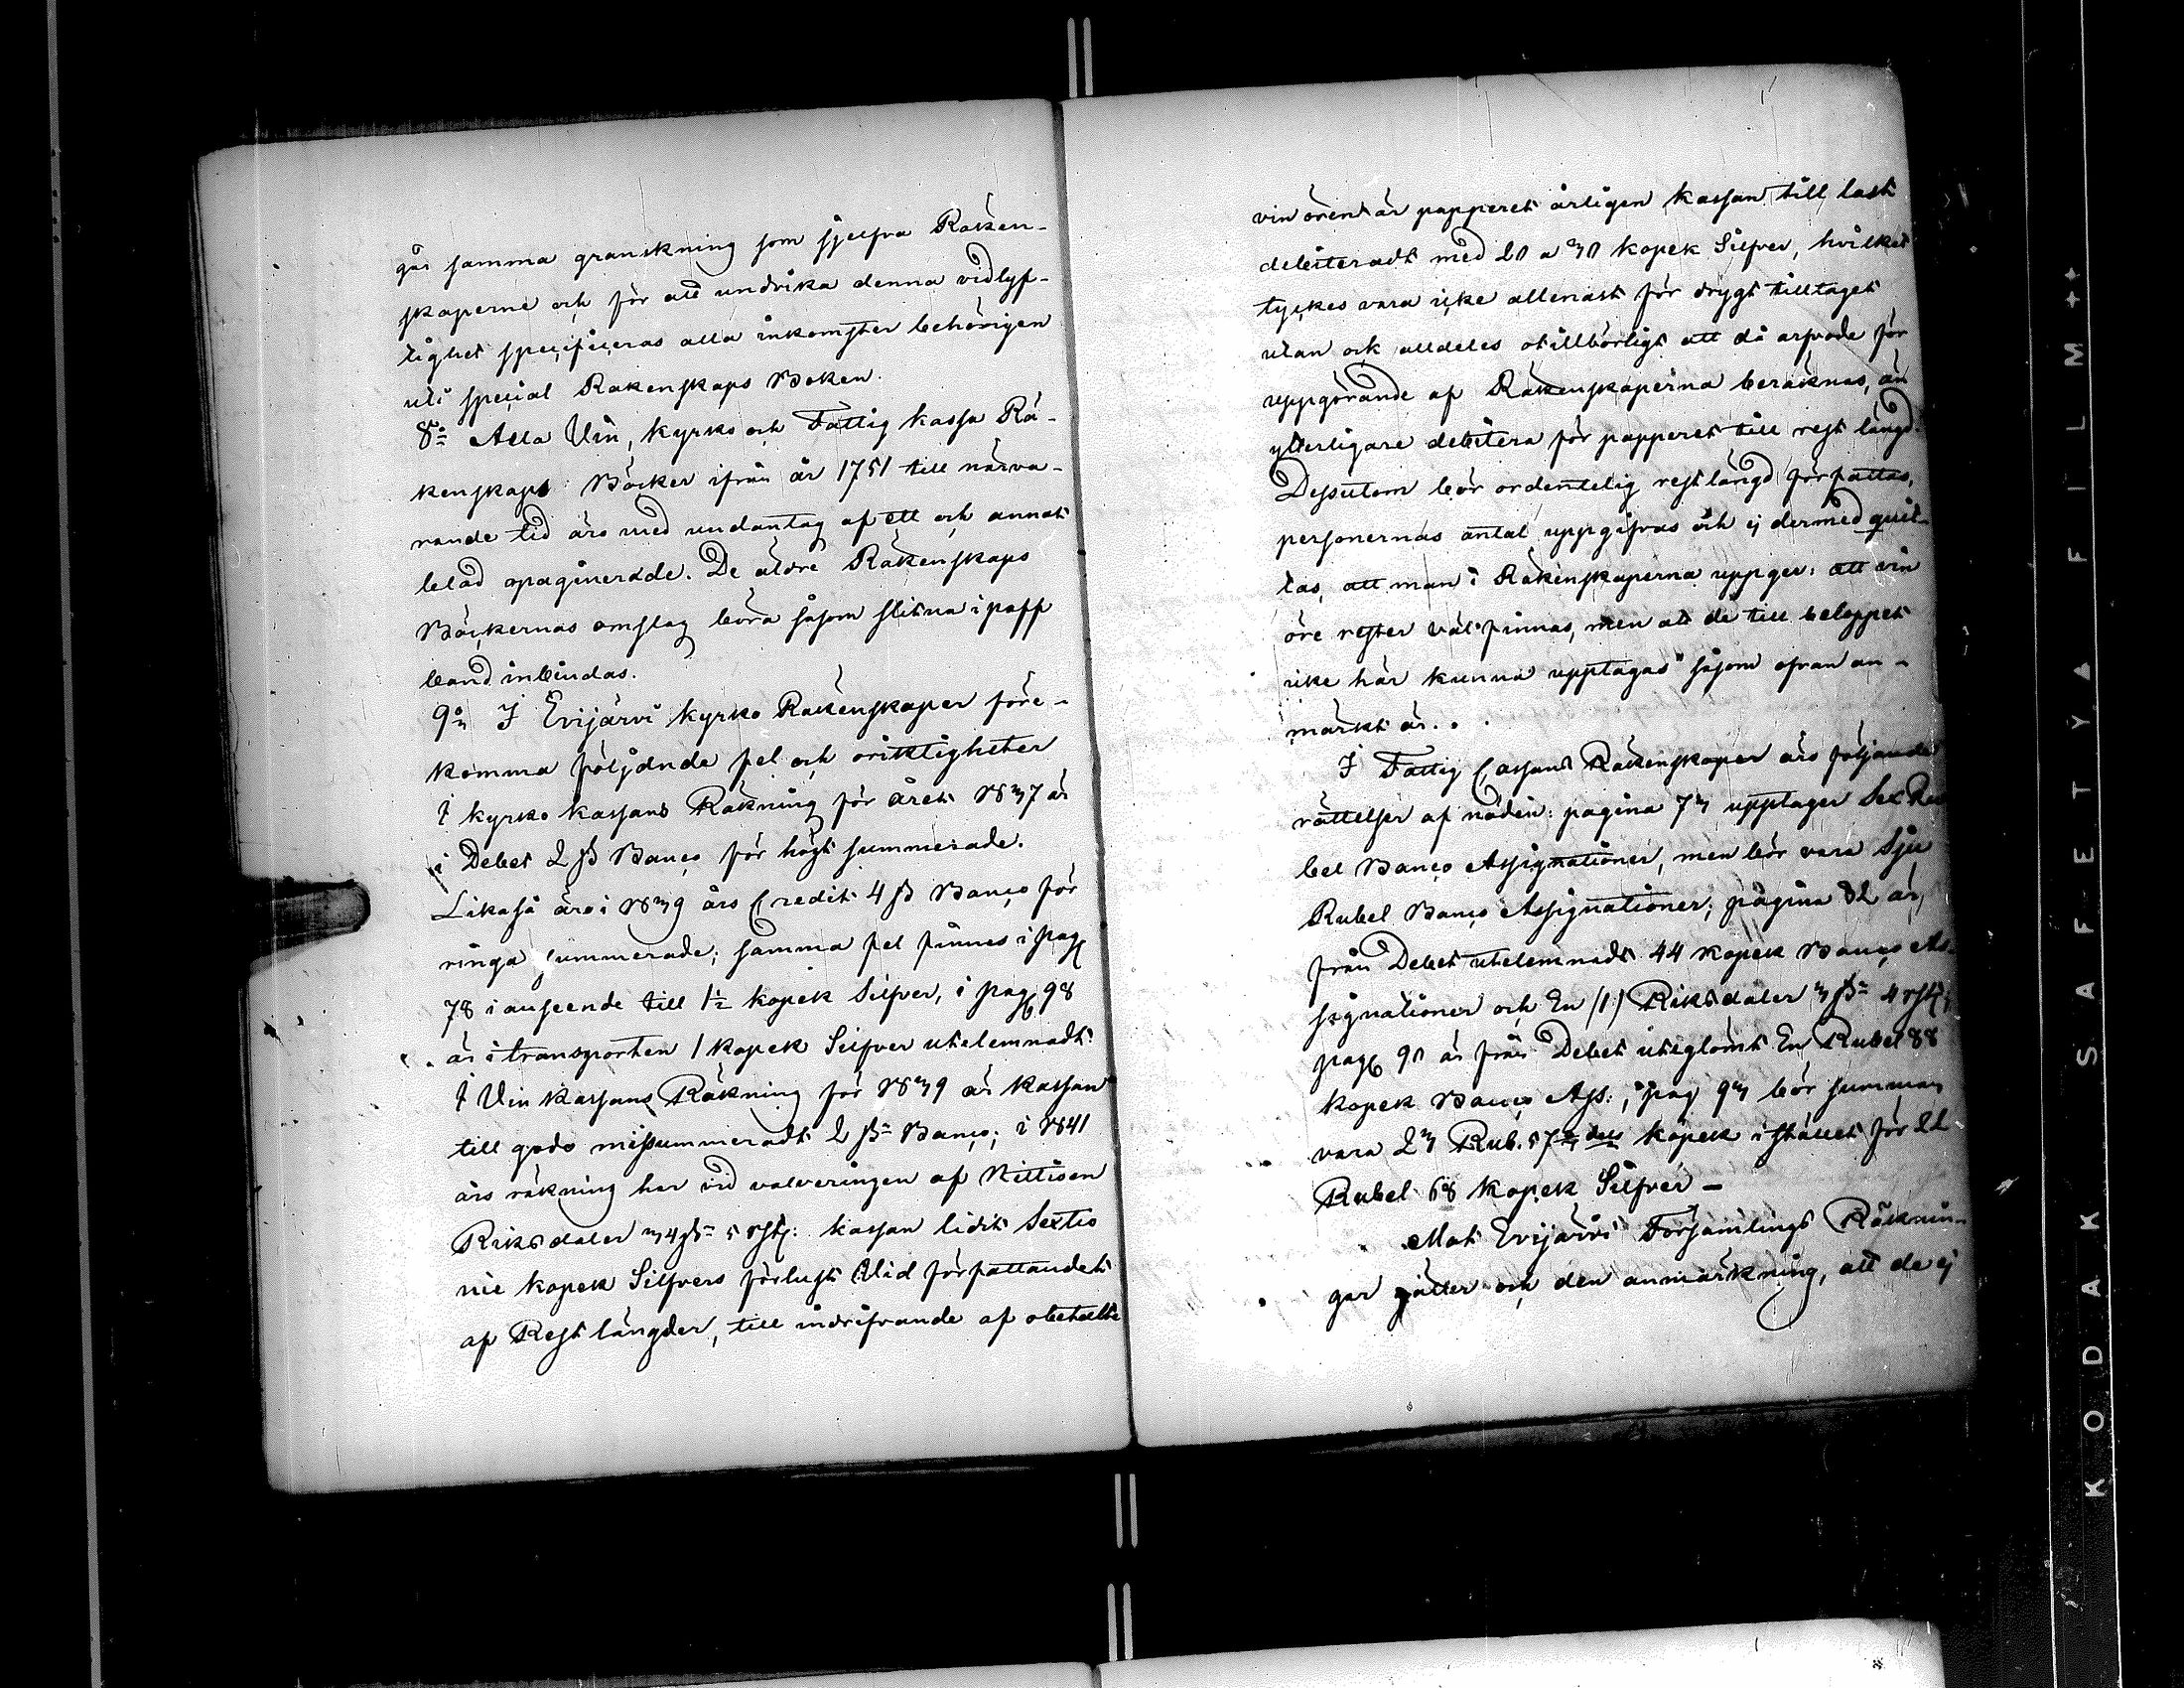 går samma granskning som sjelfva Räken-
skaperne och för att undvika denna vidlyf-
tighet specificeras alla inkomster behörigen
uti special Räkenskaps Boken.
8:o Alla Vin, kyrko och Fattig kassa Rä-
kenskaps Böcker ifrån år 1751 till närva-
rande tid äro med undantag af ett och annat
blad opaginerade. De äldre Räkenskaps
Böckernas omslag böra såsom slitna i paff
band inbindas.
9:o I Evijärvi kyrko Räkenskaper före-
komma följande fel och oriktigheter
I kyrko kassans Räkning för året 1837 är
i Debet 2 ß Banco för högt summerade.
Likaså äro i 1839 års Credit 4 ß Banco för
ringa summerade; samma fel finnes i pag
78 i anseende till 1½ kopek Silfver, i pag 98
är i transporten 1 kopek Silfver utelemnadt.
I Vin kassans Räkning för 1839 är kassan
till godo missummeradt 2 ß Banco; i 1841
års räkning har vid valveringen af Nittioen
Riksdaler 34 ß 5 rst: kassan lidit Sextio
nie kopek Silfvers förlust Vid författandet
af Rest längder, till indrifvande af obetalte
vin ören är papperet årligen kassan till last
debiteradt med 20 a 30 kopek Silfver, hvilket
tyckes vara icke allenast för drygt tilltaget
utan ock alldeles otillbörligt att då arfvode för
uppgörande af Räkenskaperna beräknas, än
ytterligare debitera för papperet till rest längd.
Dessutom bör ordentelig rest längd författas,
personernas antal uppgifvas och ej dermed quit-
tas, att man i Räkenskaperna uppger: att vin
öre rester väl finnas, men att de till beloppet
icke här kunna upptagas" såsom ofvan an-
märkt är.
I Fattig Cassans Räkenskaper äro följande
rättelser af nöden: pagina 73 upptager Sex Ru
bel Banco Assignationer, men bör vara Sju
Rubel Banco Assignationer; pagina 82 är,
från Debet utelemnadt 44 kopek Banco As-
signationer och En (1) Riksdaler 3 ß 4 rst;
pag 90 är från Debet uteglömt En Rubel 88
kopek Banco Ass:, i pag 93 bör summan
vara 23 Rub. 57 kopek i stället för 22
Rubel 68 kopek Silfver –
Mot Evijärvi Församlings Räknin-
gar gäller och den anmärkning, att de ej
KODAK SAFETY FILM